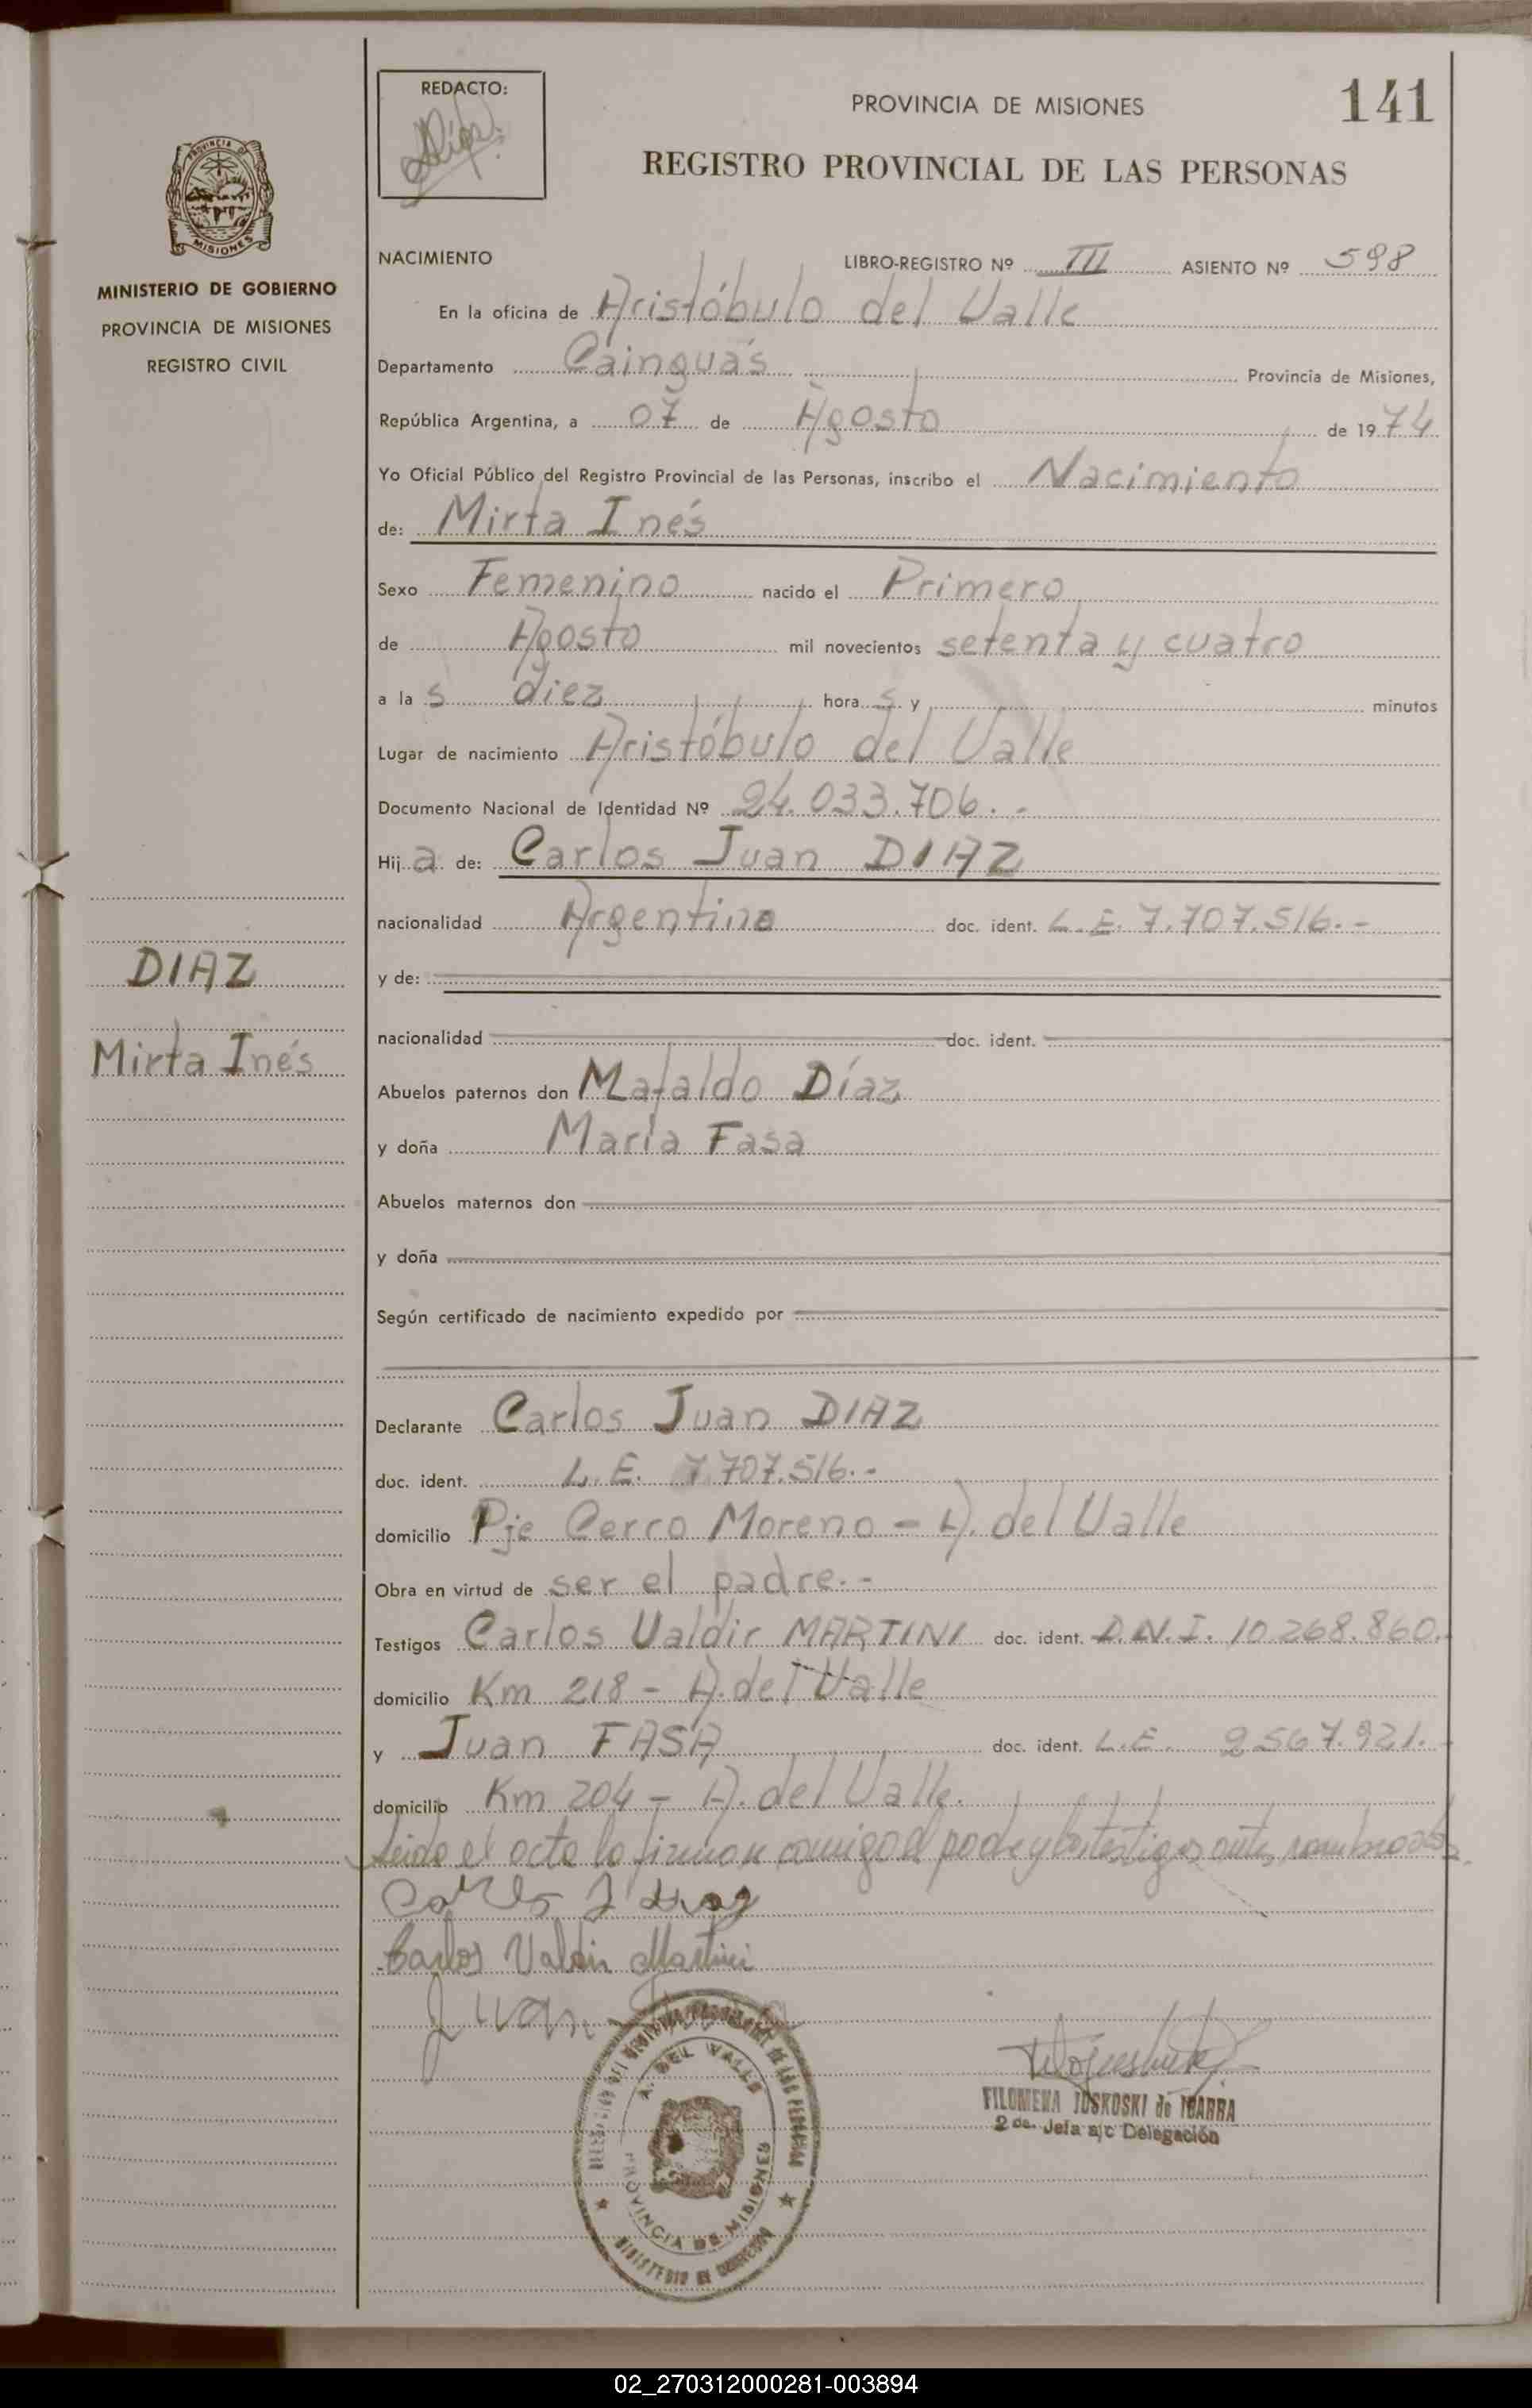 REDACTO:
PROVINCIA DE MISIONES
141
REGISTRO PROVINCIAL DE LAS PERSONAS
PROVINCIA DE
MISIONES
MINISTERIO DE GOBIERNO
PROVINCIA DE MISIONES
REGISTRO CIVIL
NACIMIENTO LIBRO-REGISTRO Nº III ASIENTO Nº 598
En la oficina de Aristóbulo del Valle
Departamento Cainguás Provincia de Misiones,
República Argentina, a 07 de Agosto de 1974
Yo Oficial Público del Registro Provincial de las Personas, inscribo el Nacimiento
de: Mirta Inés
Sexo Femenino nacido el Primero
de Agosto mil novecientos setenta y cuatro
a las diez horas y minutos
Lugar de nacimiento Aristóbulo del Valle
Documento Nacional de Identidad Nº 24.033.706.-
Hija de: Carlos Juan DIAZ
nacionalidad Argentina doc. ident. L.E. 7.707.516.-
y de:
DIAZ
Mirta Inés
nacionalidad doc. ident.
Abuelos paternos don Mafaldo Díaz
y doña María Fasa
Abuelos maternos don
y doña
Según certificado de nacimiento expedido por
Declarante Carlos Juan DIAZ
doc. ident. L.E. 7.707.516.-
domicilio Pje Cerro Moreno - A. del Valle
Obra en virtud de ser el padre.-
Testigos Carlos Valdir MARTINI doc. ident. D.N.I. 10.268.860.
domicilio Km 218 - A. del Valle
y Juan FASA doc. ident. L.E. 2567.921.
domicilio Km 204 - A. del Valle.
Leida el acta la firman conmigo el padre y los testigos antes nombrados.
Carlos J Diaz
Carlos Valdir Martini
Juan
A. DEL VALLE
PROVINCIA DE MISIONES
FILOMENA JUSKOSKI de IBARRA
2da. Jefa a/c Delegación
02_270312000281-003894